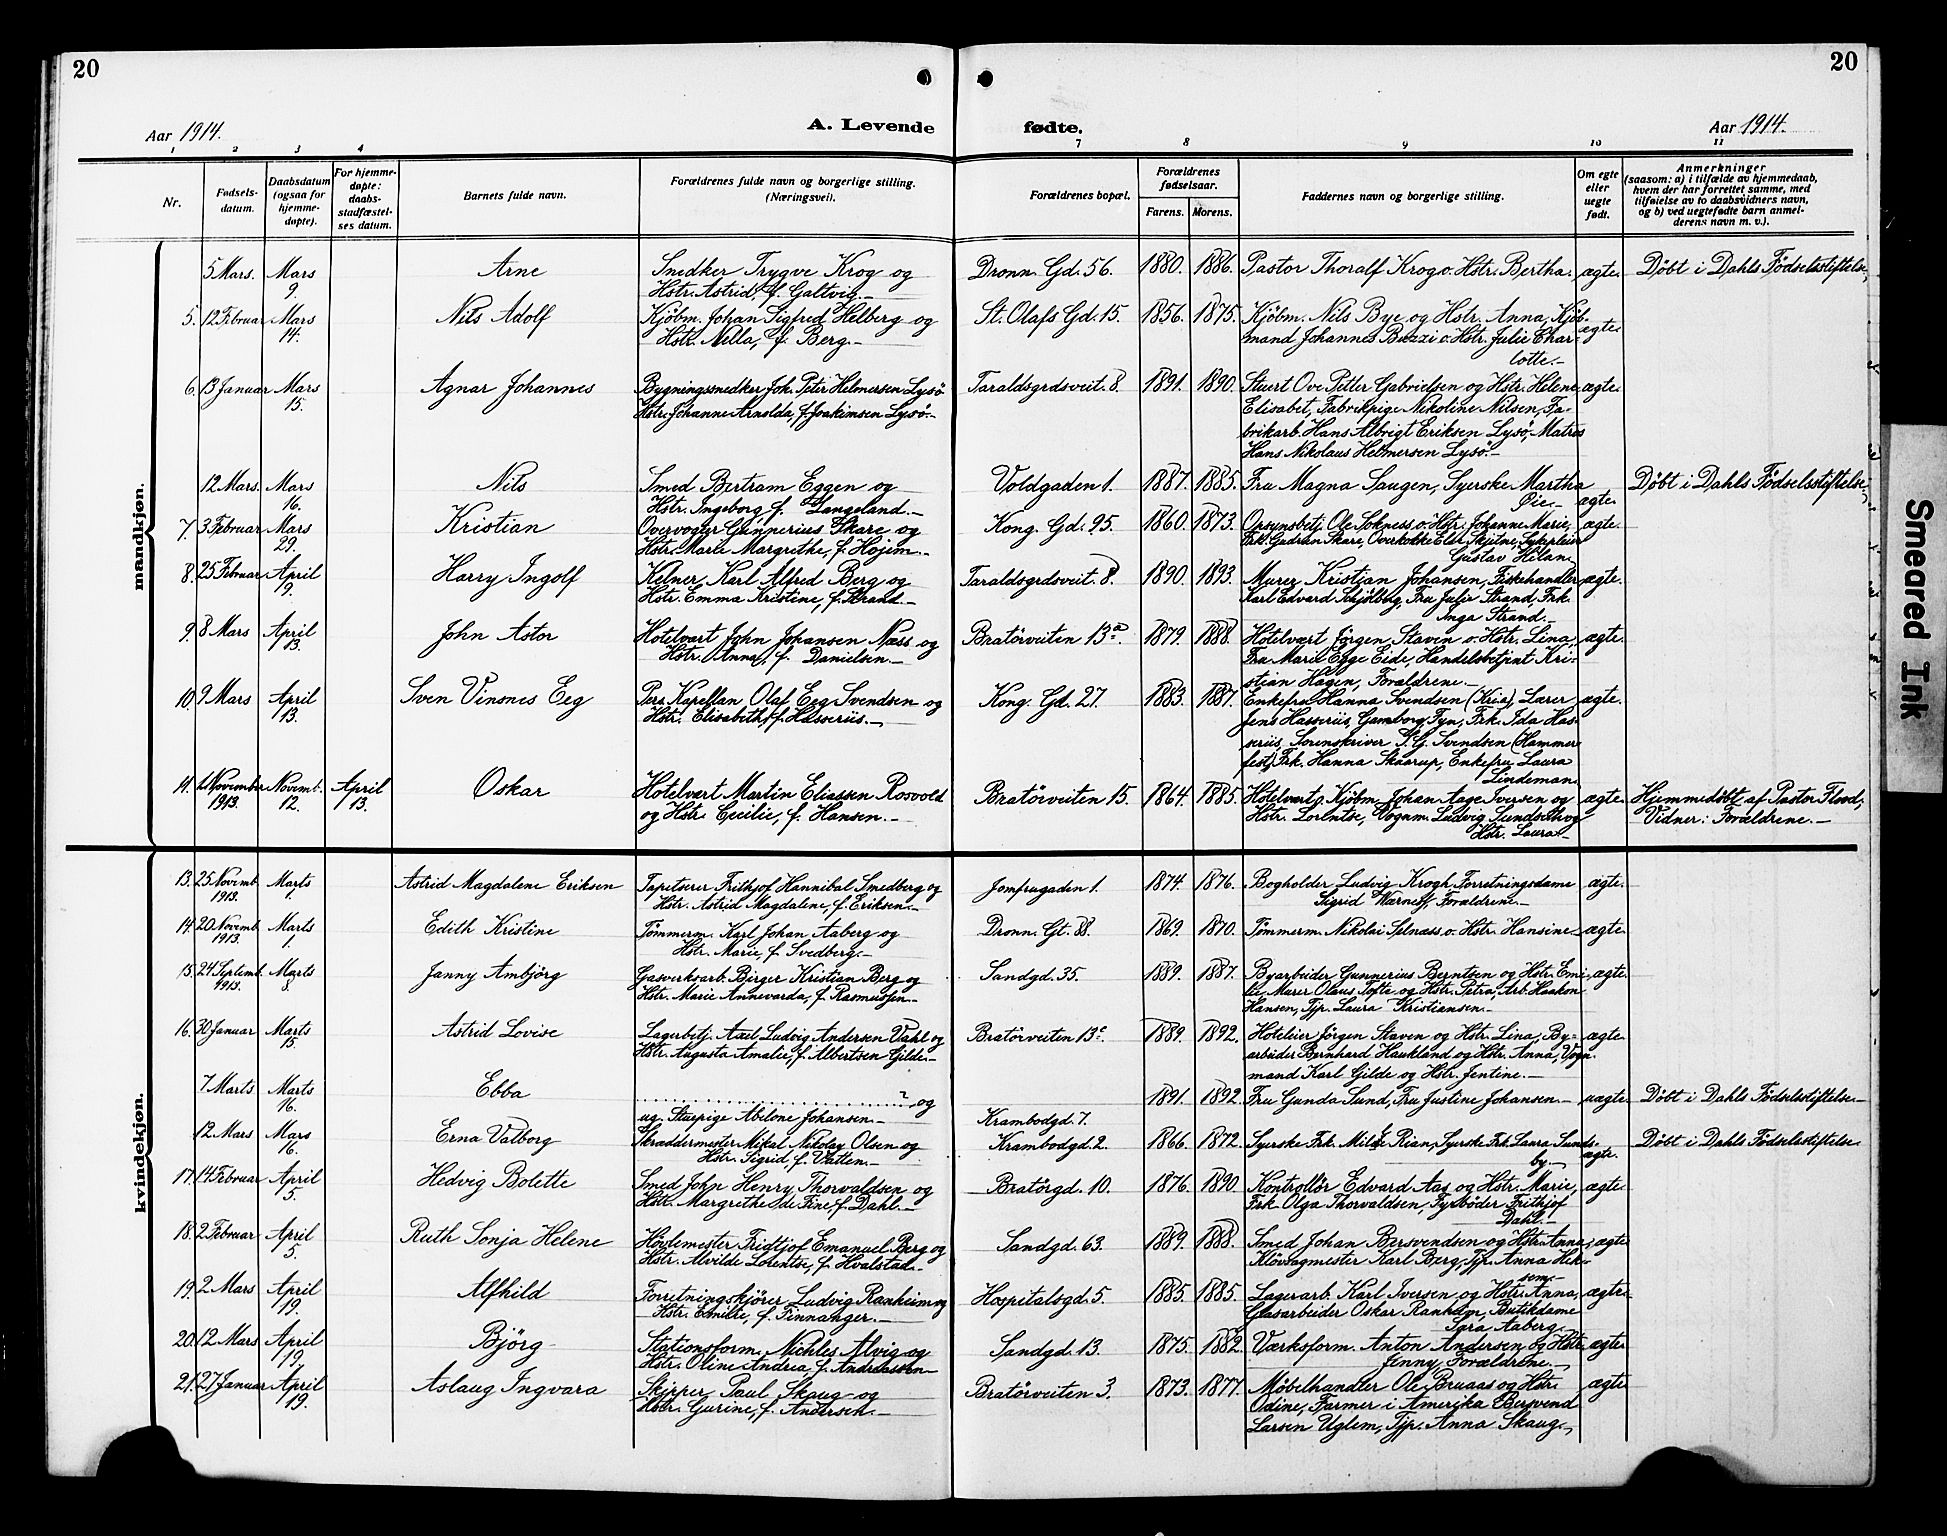 20
20
Aar 1914.
A. Levende
fødte.
Aar 1914.
1 2 3 4 7 8 9 10 11
Nr.
Fødsels-
datum.
Daabsdatum
(ogsaa for
hjemme-
døpte).
For hjemme-
døpte:
daabs-
stadfæstel-
ses datum.
Barnets fulde navn.
Forældrenes fulde navn og borgerlige stilling.
(Næringsvei).
Forældrenes bopæl.
Forældrenes
fødselsaar.
Farens. Morens.
Faddernes navn og borgerlige stilling.
Om egte
eller
uegte
født.
Anmerkninger
(saasom: a) i tilfælde av hjemmedaab,
hvem der har forrettet samme, med
tilføielse av to daabsvidners navn,
og b) ved uegtefødte barn anmel-
derens navn m. v.).
mandkjøn.
5 Mars. Mars Arne Snedker Trygve Krog og Dronn. Gd. 56. 1880. 1886. Pastor Thoralf Krog o. Hstr. Bertha. ægte. Døbt i Dahls Fødselsstiftelse,
9. Hstr. Astrid, f. Galtvig.
5. 12 Februar Mars Nils Adolf Kjøbm. Johan Sigfred Helberg og St. Olafs Gd. 15. 1856. 1875. Kjøbm. Nils Bye og Hstr. Anna, Kjøb- ægte.
14. Hstr. Nella, f. Berg. mand Johannes Buzzi o. Hstr. Julie Char-
lotte.
6. 13 Januar Mars Agnar Johannes Bygningssnedker Joh. Peter Helmersen Lysø Taraldsgrdsveit. 8. 1891. 1890. Stuert Ove Petter Gabrielsen og Hstr. Helene ægte.
15. Hstr. Johanne Arnolda, f. Joakimsen Lysø. Elisabet, Fabrikpige Nikoline Nilsen, Fa-
brikarb. Hans Albrigt Eriksen Lysø, Matros
Hans Nikolaus Helmersen Lysø.
12 Mars. Mars Nils Smed Bertram Eggen og Voldgaden 1. 1887. 1885. Fru Magna Saugen, Syerske Martha Døbt i Dahls Fødselsstiftelse,
16. Hstr. Ingeborg f. Langeland. Øie. ægte.
7. 3 Februar Mars Kristian Overvogter Gunnerius Skare og Kong. Gd. 95. 1860. 1873. Opsynsbetj. Ole Sokness o. Hstr. Johanne Marie, ægte.
29. Hstr. Marle Margrethe, f. Hojem. Frk. Gudrun Skare, Overkokke Elen Skjetne, Sykepleier
Gustav Hilan.
8. 25 Februar April Harry Ingolf Kelner Karl Alfred Berg og Taraldsgrdsveit. 8. 1890. 1893. Murer Kristian Johansen, Fiskehandler ægte.
19. Hstr. Emma Kristine, f. Strand. Karl Edvard Schjølberg, Fru Julia Strand, Frk.
Inga Strand.
9. 8 Mars April John Astor Hotelvært John Johansen Næss og Bratørveiten 13a. 1879. 1888. Hotelvært Jørgen Staven o. Hstr. Lina, ægte.
13. Hstr. Anna, f. Danielsen. Fru Marie Egge Eide, Handelsbetjent Kri-
stian Hagen, Forældrene.
10. 9 Mars April Sven Vinsnes Eeg Pers. Kapellan Olaf Eeg Svendsen og Kong. Gd. 27. 1883. 1887. Enkefru Hanna Svendsen (Kria), Lærer ægte.
13. Hstr. Elisabeth, f. Hasseriis. Jens Hasseriis, Gamborg, Fyn, Frk. Ida Has-
seriis, Sorenskriver P. G. Svendsen (Hammer-
fest), Frk. Hanna Skaarup, Enkefru Laura
Lindeman.
11. 2 November Novemb. April Oskar Hotelvært Martin Eliassen Rosvold Bratørveiten 15. 1864. 1885. Hotelvært o. Kjøbm. Johan Aage Iversen og ægte. Hjemmedøbt af Pastor Flood,
1913. 12. 13. og Hstr. Cecilie, f. Hansen. Hstr. Lorentse, Vognm. Ludvig Sundseth og Vidner: Forældrene.
Hstr. Laura
kvindekjøn.
13. 25 Novemb. Marts Astrid Magdalene Eriksen Tapetserer Frithjof Hannibal Smedberg og Jomfrugaden 1. 1874. 1876. Bogholder Ludvig Krogh, Forretningsdame ægte.
1913. 1. Hstr. Astrid Magdalene, f. Eriksen. Sigrid Værness, Forældrene.
14. 20 Novemb. Marts Edith Kristine Tømmerm. Karl Johan Aaberg og Dronn. Gt. 88. 1869. 1870. Tømmerm. Nikolai Selnæss o. Hstr. Hansine ægte.
1913. 1. Hstr. Marie, f. Svedberg.
15. 24 Septemb. Marts Janny Ambjørg Gasverksarb. Birger Kristian Berg og Sandgd. 35. 1889. 1887. Byarbeider Gunnerius Berntsen og Hstr. Emi- ægte.
1913. 8. Hstr. Marie Annevarda, f. Rasmussen. lie, Murer Olaus Tofte og Hstr. Petra, Arb. Haakon
Hansen, Tjp. Laura Kristiansen.
16. 30 Januar Marts Astrid Lovise Lagerbetj. Axel Ludvig Andersen Vahl og Bratørveiten 13c. 1889. 1892. Hoteleier Jørgen Staven og Hstr. Lina, By- ægte.
15. Hstr. Augusta Amalie, f. Albertsen Gilde. arbeider Bernhard Haukland og Hstr. Anna, Vogn-
mand Karl Gilde og Hstr. Jentine.
7 Marts Marts Ebba ? og 1891. 1892. Fru Gunda Sund, Fru Justine Johansen. uægte. Døbt i Dahls Fødselsstiftelse
16. ug. Stuepige Abelone Johansen Krambodgd. 7.
12 Mars Mars Erna Valborg Skræddermester Mikal Nikolay Olsen og Krambodgd. 2. 1866. 1872. Syerske Frk. Milde Rian, Syerske Frk. Laura Sunds- Døbt i Dahls Fødselsstiftelse
16. Hstr. Sigrid f. Vatten. by. ægte.
17. 14 Februar April Hedvig Bolette Smed John Henry Thorvaldsen og Bratørgd. 10. 1876. 1890. Kontrollør Edvard Aas og Hstr. Marie, ægte.
5. Hstr. Margrethe de Fine, f. Dahl. Frk. Olga Thorvaldsen, Fyrbøder Frithjof
Dahl.
18. 2 Februar April Ruth Sonja Helene Hovmester Fridtjof Emanuel Berg og Sandgd. 63. 1889. 1888. Smed Johan Bersvendsen og Hstr. Anna, ægte
5. Hstr. Alvilde Lorentse, f. Hvalstad. Kløvsagmester Karl Berg, Tjp. Anna Hel-
sem.
19. 2 Mars April Alfhild Forretningskjører Ludvig Ranheim og Hospitalsgd. 5. 1885. 1885. Lagerarb. Karl Iversen og Hstr. Anna, ægte.
19. Hstr. Emilie, f. Finnanger. Glasarbeider Oskar Ranheim, Butikdame
Sara Aaberg.
20. 12 Mars April Bjørg Stationsform. Nichles Alvig og Sandgd. 13. 1875. 1882. Værksform. Anton Andersen og Hstr. ægte
19. Hstr. Oline Andrea, f. Andreassen Jenny, Forældrene.
21. 27 Januar April Aslaug Ingvara Skipper Paul Skaug og Bratørveiten 3. 1873. 1877. Møbelhandler Ole Bruaas og Hstr. ægte
19. Hstr. Gurine, f. Andersen. Odine, Farmer i Amerika Bersvend
Larsen Uglem, Tjp. Anna Skaug.
Smeared Ink